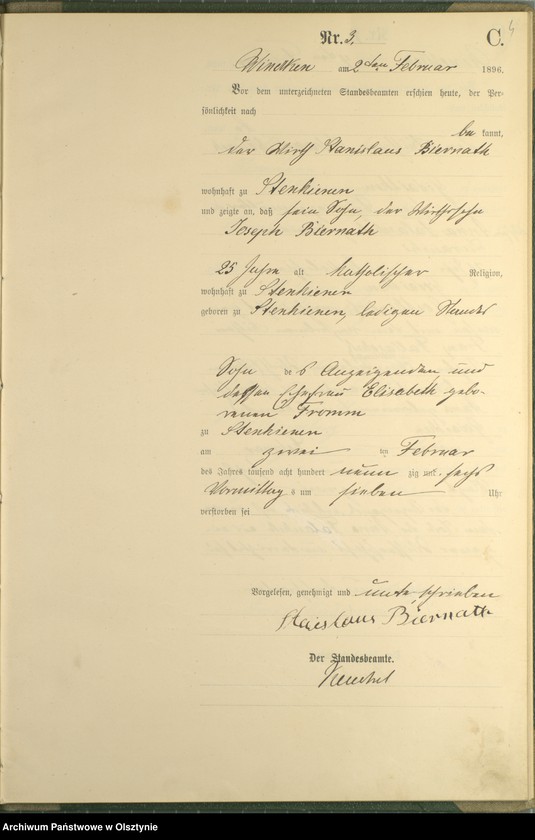 4
Nr. 3. C.
am 2ten Februar 1896.
Vor dem unterzeichneten Standesbeamten erschien heute, der Per-
sönlichkeit nach
be kannt,
der Wirth Stanislaus Biernath
wohnhaft zu Stenkienen
und zeigte an, daß sein Sohn, der Wirthssohn
Joseph Biernath
25 Jahre alt Katholischer Religion,
wohnhaft zu Stenkienen
geboren zu Stenkienen, ledigen Standes
Sohn des Anzeigenden und
dessen Ehefrau Elisabeth gebo-
renen Fromm
zu Stenkienen
am zwei ten Februar
des Jahres tausend acht hundert neun zig und sechs
Vormittag s um sieben Uhr
verstorben sei
Vorgelesen, genehmigt und unterschrieben
Stanislaus Biernath
Der Standesbeamte.
Archiwum Państwowe w Olsztynie